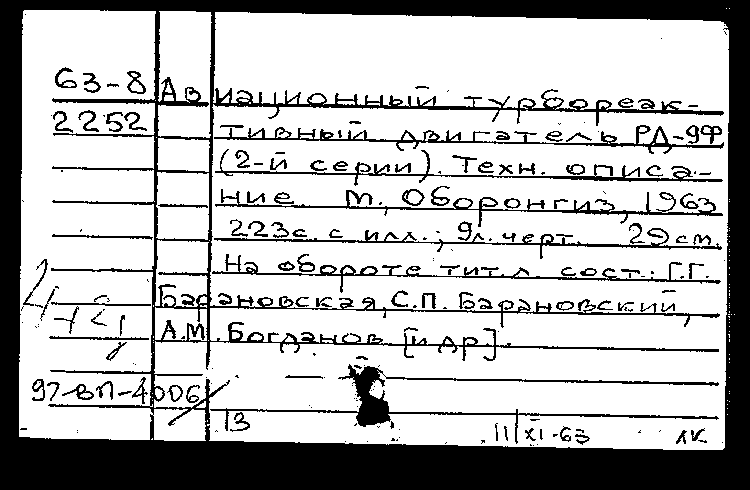 63-8 Авиационный турбореак-
2252 тивный двигатель РД-9Ф
(2-й серии). Техн. описа-
ние. М., Оборонгиз, 1963
223с. с илл.; 9л. черт. 29см.
На обороте тит. л. сост.: Г.Г.
Барановская, С.П. Барановский,
А.М. Богданов [и др.].
97-ВП-4006
13 11/XI-63 ЛК